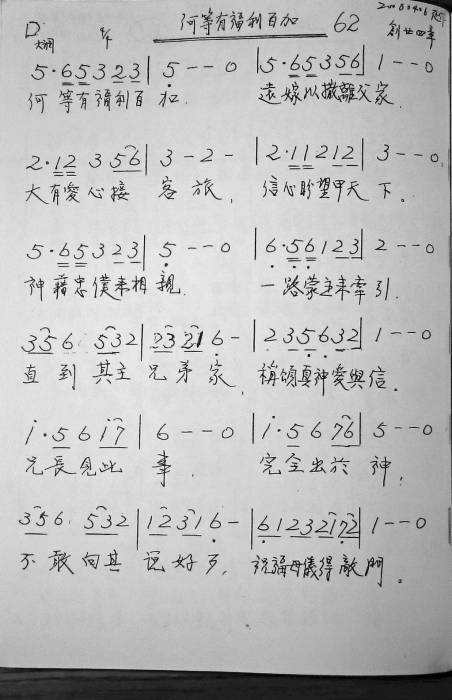 何等有福利百加 62
D大調 4/4 創廿四章
5·65323|5--0 |5·65356|1--0
何等有福利百加. 遠嫁以撒離父家.
2·12 3 56|3-2- |2·11212|3--0
大有愛心接客旅, 信心盼望甲天下。
5·65323|5--0 |6·56123|2--0
神藉忠僕來相親. 一路蒙主來牽引.
356 532|23 216- |235632|1--0
直到其主兄弟家, 稱頌真神愛與信。
i·5617|6--0 |i·5676|5--0
兄長見此事, 完全出於神,
356 532|12 316- |61232172|1--0
不敢向其説好歹, 祝福母儀得敵門。